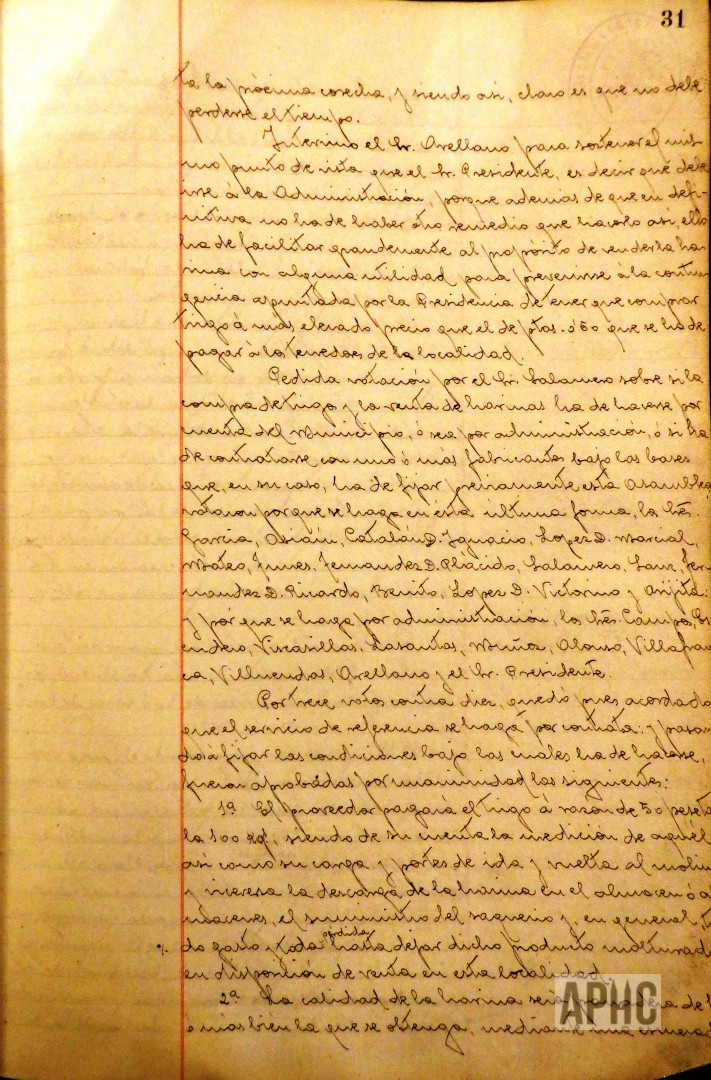 31
ta la prócima cosecha, y siendo asi, claro es que no debe
perderse el tiempo.
Intervino el Sr. Arellano para sostener el mis-
mo punto de vista que el Sr. Presidente, es decir que debe
irse á la Administración, porque ademas de que en defi-
nitiva no ha de haber otro remedio que hacerlo asi, ello
ha de facilitar grandemente el propósito de vender la ha-
rina con alguna utilidad para prevenirse á la contin-
gencia apuntada por la Presidencia de tener que comprar
trigo á mas elevado precio que el de ptas. 0'50 que se ha de
pagar á los tenedores de la localidad.
Pedida votación por el Sr. Salamero sobre si la
compra de trigo y la venta de harinas ha de hacerse por
cuenta del Municipio, ó sea por administración, ó si ha
de contratarse con uno ó más fabricantes bajo las bases
que, en su caso, ha de fijar previamente esta Asamblea
votaron por que se haga en esta última forma, los Sres.
Garcia, Asiáin, Catalán D. Ignacio, Lopez D. Marcial,
Mateo, Funes, Fernandez D. Plácido, Salamero, Sanz, Fer-
nandez D. Ricardo, Benito, Lopez D. Victorino y
y por que se haga por administración, los Sres. Campos, Es-
cudero, Viscasillas, Lasantas, Muñoz, Alonso, Villafran-
ca, Villuendas, Arellano y el Sr. Presidente.
Por trece votos contra diez, quedó pues acordado
que el servicio de referencia se haga por contrata: y pasan-
do á fijar las condiciones bajo las cuales ha de hacerse,
fueron aprobadas por unanimidad las siguientes:
1ª El proveedor pagará el trigo á razón de 50 peseta
los 100 kgs, siendo de su cuenta la medición de aquel
asi como su carga y portes de ida y vuelta al molin
y viceversa la descarga de la harina en el almacen ó al
macenes, el suministro del saquerio y, en general, to
do gasto y toda perdida hasta dejar dicho producto molturad
en disposición de venta en esta localidad.
2ª La calidad de la harina será de
ó mas bien la que se obtenga, mediante una
APHC